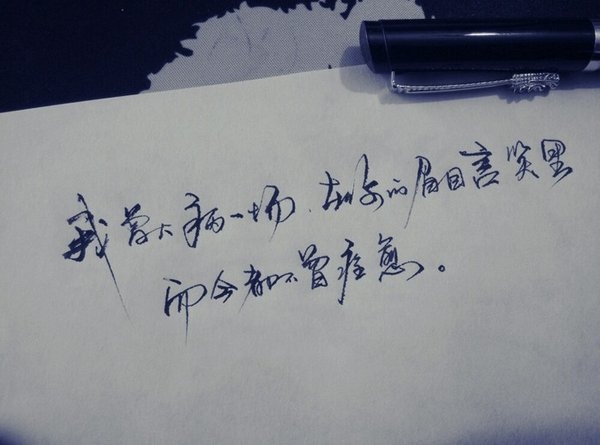 我曾大病一场,在你的眉目言笑里
而今都不曾痊愈。